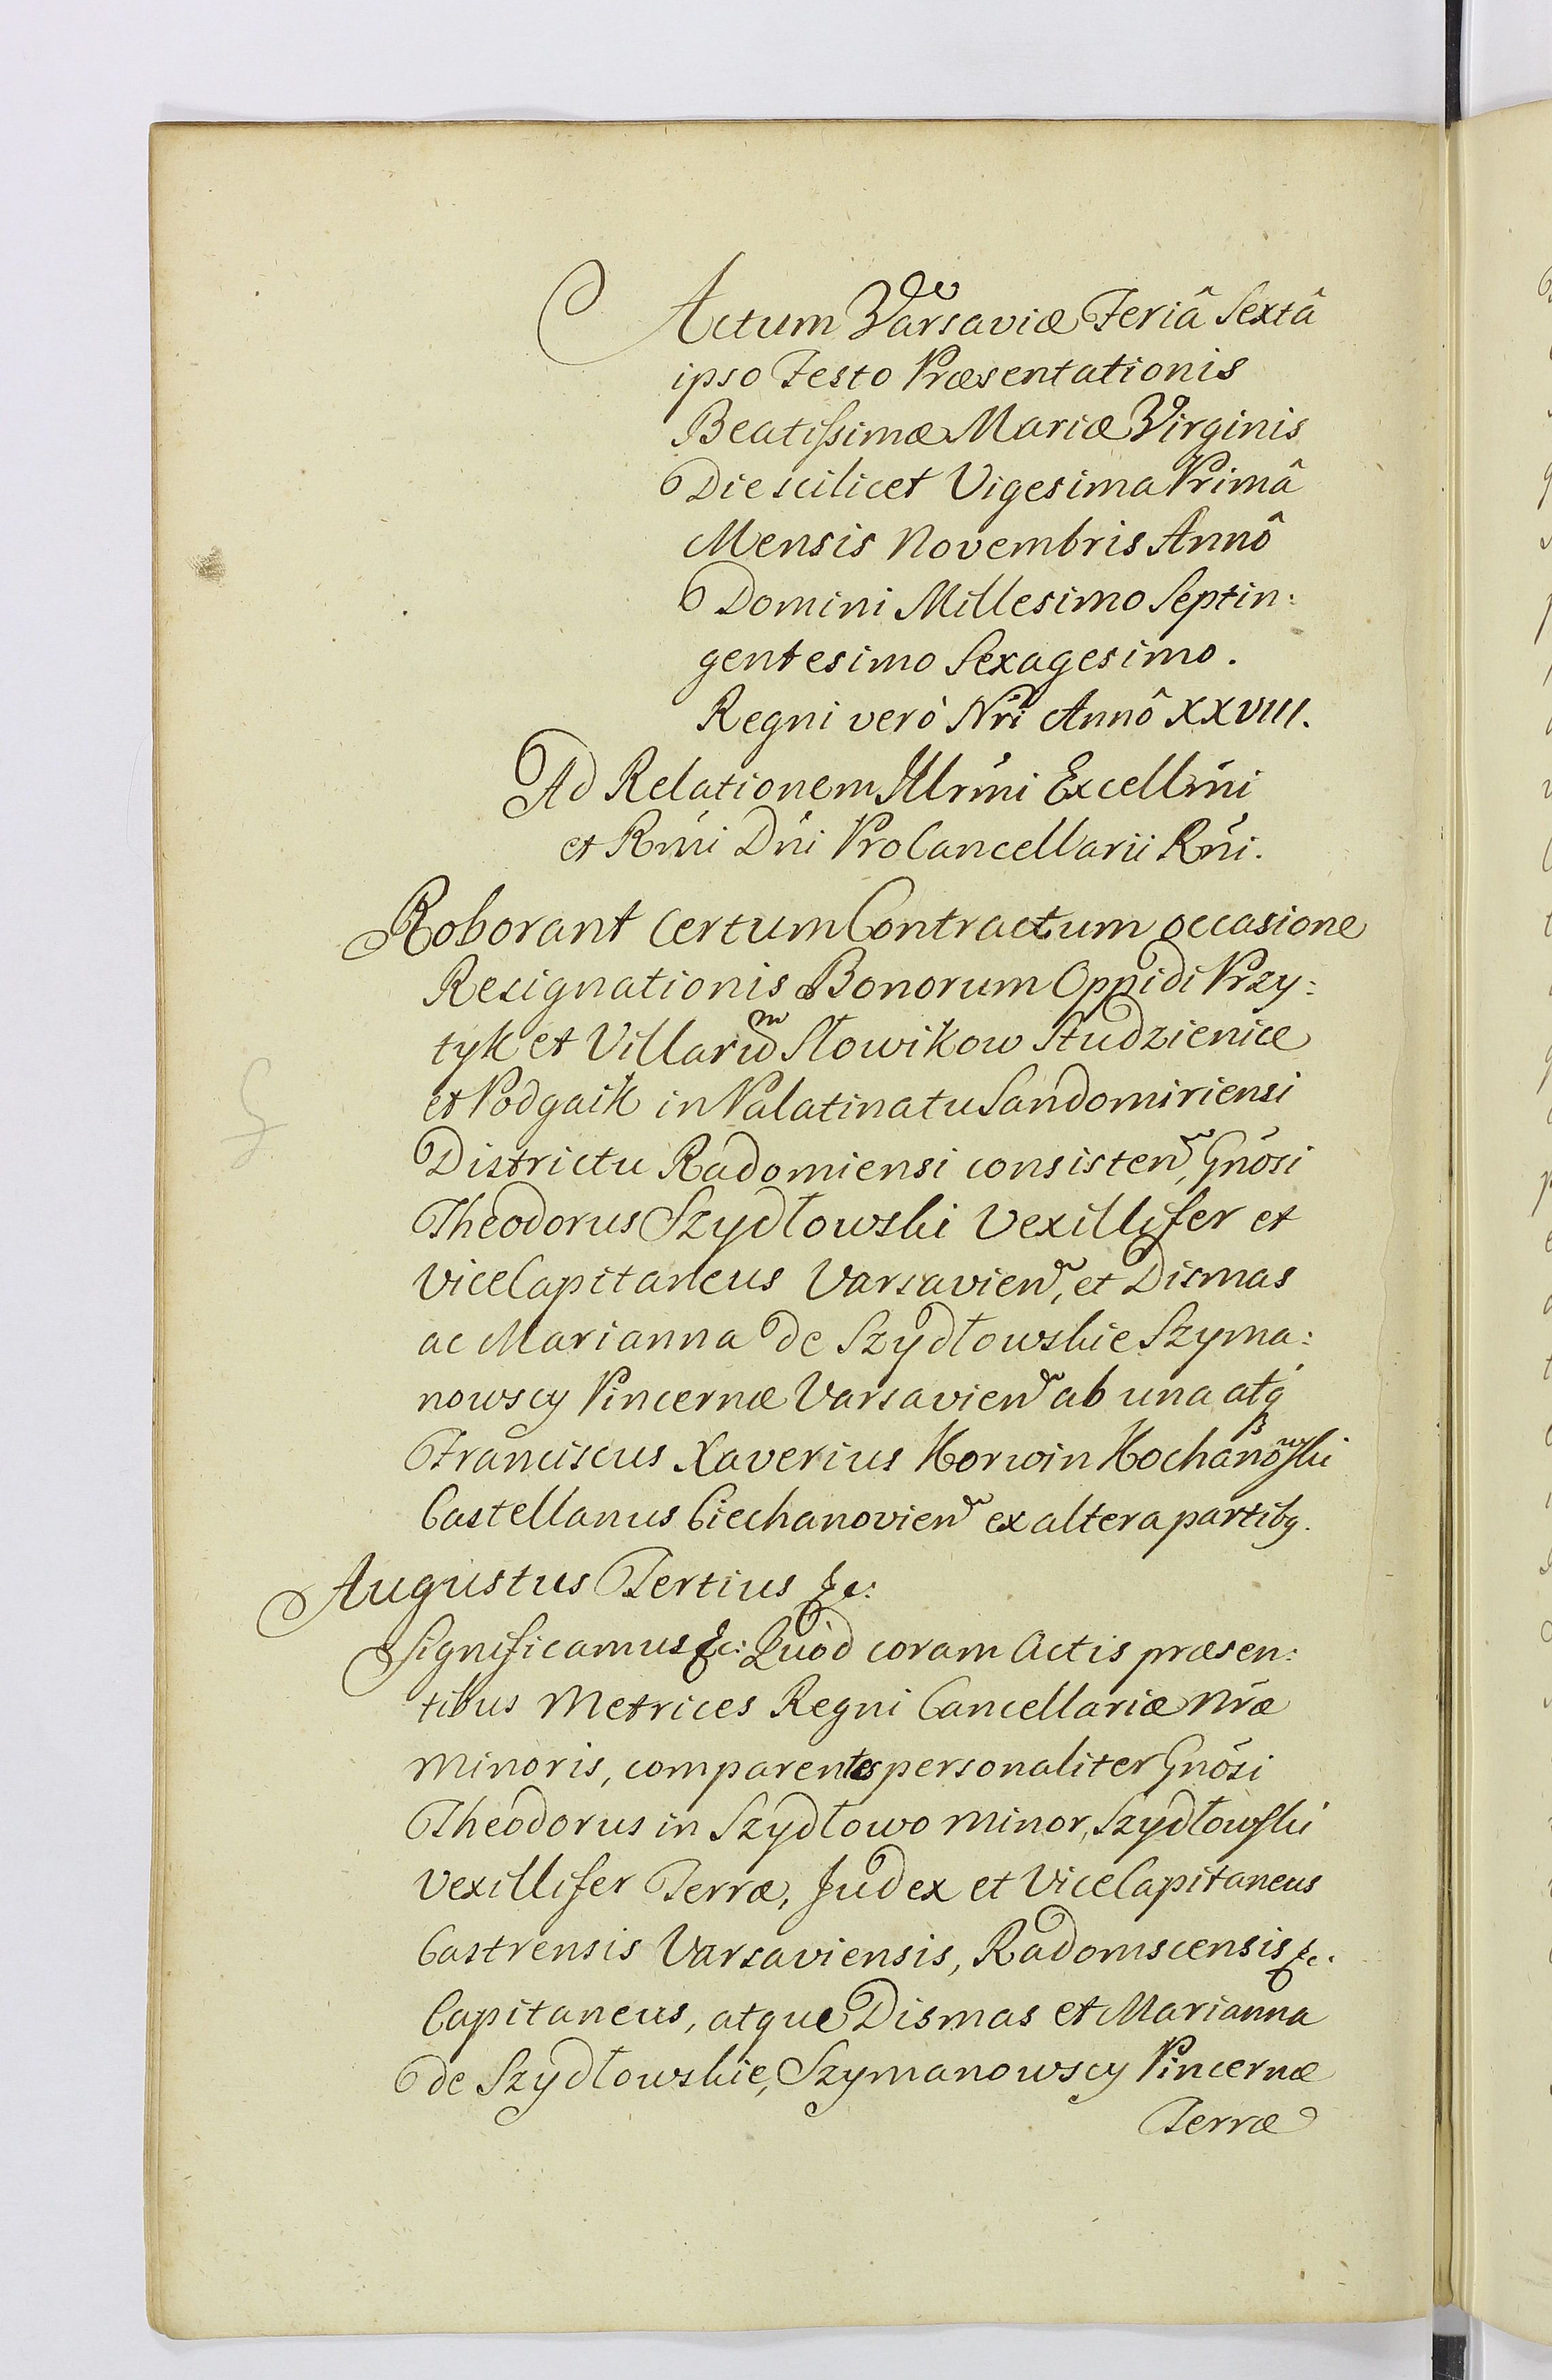 Actum Varsaviæ Feriâ Sextâ
ipso Festo Præsentationis
Beatissimæ Mariæ Virginis
Die scilicet Vigesima Primâ
Mensis Novembris Annô
Domini Millesimo Septin:
gentesimo Sexagesimo.
Regni verò Nri Annô XXVIII.
Ad Relationem Illrmi Excellmi
et Rmi Dni ProCancellarii Rni.
Roborant certum Contractum occasione
Resignationis Bonorum Oppidi Przy:
tyk et Villarum Słowikow Studzienice
et Podgaik in Palatinatu Sandomiriensi
Districtu Radomiensi consisten, Gnosi
Theodorus Szydłowski Vexillifer et
ViceCapitaneus Varsavien, et Dismas
ac Marianna de Szydłowskie Szyma:
nowscy Pincernæ Varsavien ab una atq
Franciscus Xaverius Korwin Kochanowski
Castellanus Ciechanovien ex altera partibq.
Augustus Tertius &c:
Significamus &c: Quòd coram Actis præsen:
tibus Metrices Regni Cancellariæ Nræ
Minoris, comparentes personaliter Gnosi
Theodorus in Szydłowo minor, Szydłowski
Vexillifer Terræ, Judex et ViceCapitaneus
Castrensis Varsaviensis, Radomscensis &c.
Capitaneus, atque Dismas et Marianna
de Szydłowskie, Szymanowscy Pincernæ
Terræ